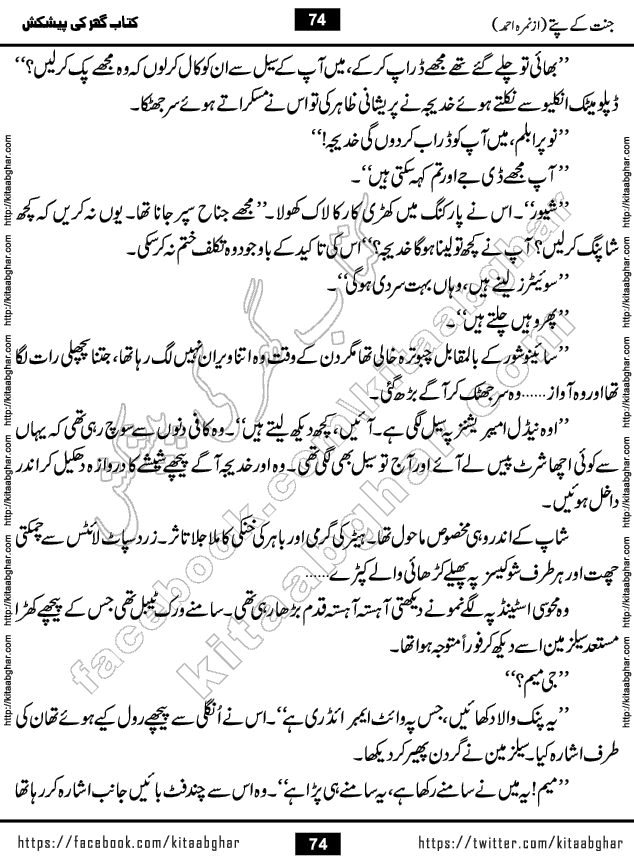 جنت کے پتے (از نمرہ احمد)
74
کتاب گھر کی پیشکش
’’بھائی تو چلے گئے تھے مجھے ڈراپ کر کے، میں آپ کے سیل سے ان کو کال کر لوں کہ وہ مجھے پک کر لیں؟‘‘
ڈپلومیٹک انکلیو سے نکلتے ہوئے خدیجہ نے پریشانی ظاہر کی تو اس نے مسکراتے ہوئے سر جھٹکا۔
’’نو پرابلم، میں آپ کو ڈراپ کر دوں گی خدیجہ!‘‘
’’آپ مجھے ڈی جے اور تم کہہ سکتی ہیں‘‘۔
’’شیور‘‘۔ اس نے پارکنگ میں کھڑی کار کا لاک کھولا۔ ’’مجھے جناح سپر جانا تھا۔ یوں نہ کریں کہ کچھ
شاپنگ کر لیں؟ آپ نے کچھ تو لینا ہو گا خدیجہ؟‘‘ اس کی تاکید کے باوجود وہ تکلف ختم نہ کر سکی۔
’’سوئیٹرز لینے ہیں، وہاں بہت سردی ہو گی‘‘۔
’’پھر وہیں چلتے ہیں‘‘۔
’’سائینوشور کے بالمقابل چبوترہ خالی تھا مگر دن کے وقت وہ اتنا ویران نہیں لگ رہا تھا، جتنا پچھلی رات لگا
تھا اور وہ آواز...... وہ سر جھٹک کر آگے بڑھ گئی۔
’’اوہ نیڈل امپریشنز پہ سیل لگی ہے۔ آئیں، کچھ دیکھ لیتے ہیں‘‘۔ وہ کافی دنوں سے سوچ رہی تھی کہ یہاں
سے کوئی اچھا شرٹ پیس لے آئے اور آج تو سیل بھی لگی تھی۔ وہ اور خدیجہ آگے پیچھے شیشے کا دروازہ دھکیل کر اندر
داخل ہوئیں۔
شاپ کے اندر وہی مخصوص ماحول تھا۔ ہیٹر کی گرمی اور باہر کی خنکی کا ملا جلا تاثر۔ زرد سپاٹ لائٹس سے چمکتی
چھت اور ہر طرف شوکیسز پہ پھیلے کڑھائی والے کپڑے......
وہ محو سی اسٹینڈ پہ لگے نمونے دیکھتی آہستہ آہستہ قدم بڑھا رہی تھی۔ سامنے ورک ٹیبل تھی جس کے پیچھے کھڑا
مستعد سیلزمین اسے دیکھ کر فوراً متوجہ ہوا تھا۔
’’جی میم؟‘‘
’’یہ پنک والا دکھائیں، جس پہ وائٹ ایمبرائڈری ہے‘‘۔ اس نے اُنگلی سے پیچھے رول کیے ہوئے تھان کی
طرف اشارہ کیا۔ سیلزمین نے گردن پھیر کر دیکھا۔
’’میم! یہ میں نے سامنے رکھا ہے، یہ سامنے ہی پڑا ہے‘‘۔ وہ اس سے چند فٹ بائیں جانب اشارہ کر رہا تھا
http://kitaabghar.com http://kitaabghar.com http://kitaabghar.com http://kitaabghar.com http://kitaabghar.com http://kitaabghar.com
http://kitaabghar.com http://kitaabghar.com http://kitaabghar.com http://kitaabghar.com http://kitaabghar.com http://kitaabghar.com
کتاب گھر کی پیشکش
facebook.com/kitaabghar
kitaabghar.com
https://facebook.com/kitaabghar
74
https://twitter.com/kitaabghar